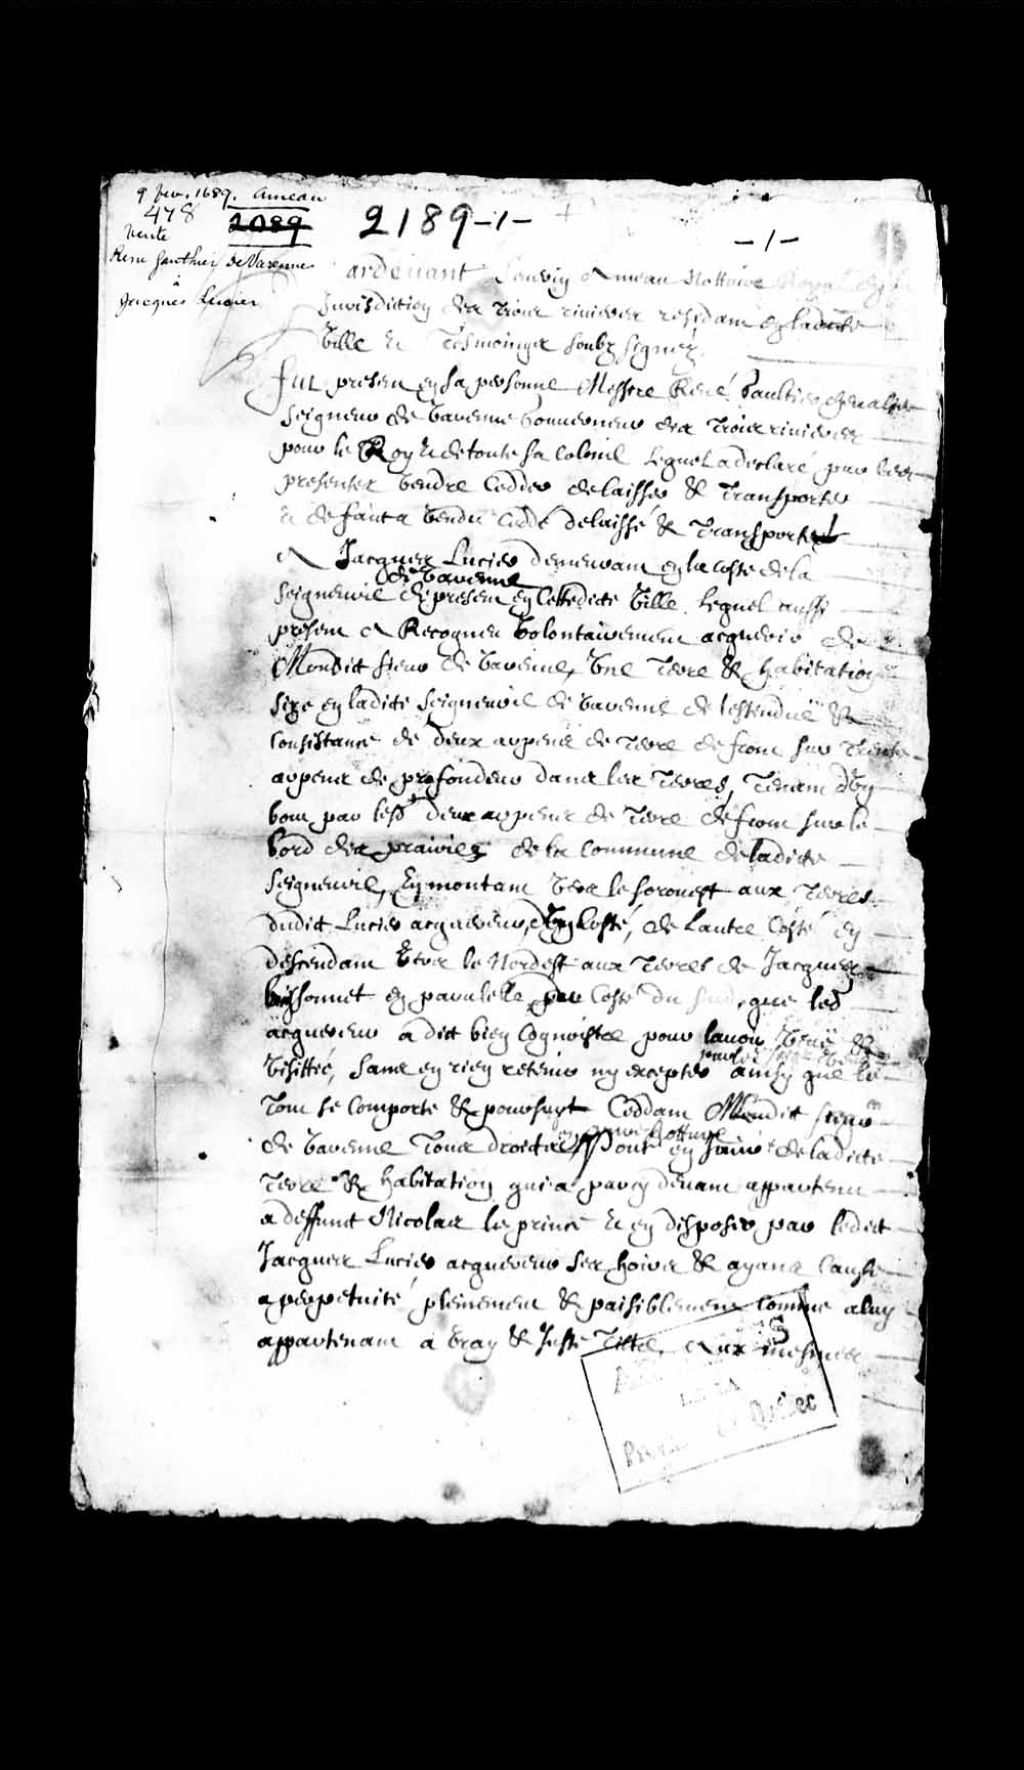 9 fev. 1689. Ameau
478 2089
2189-1-
-1-
Vente
Rene Gauthier de Varenne
à
Jacques Lucier
Pardevant Severin Ameau Nottaire Royal en la
Jurisdiction des Trois rivieres residant en ladicte
Ville et Tesmoings soubz signez
Fut present en sa personne Messire René Gaultier chevalier
Seigneur de Varenne Gouverneur des Trois rivieres
pour le Roy et de toute sa Colonie lequel a declaré par ces
presentes Vendre Cedder delaisser & Transporter
et de faict a Vendu Ceddé delaissé & Transporté
A Jacques Lucier demeurant en la coste de la
de Varenne
Seigneurie de present en cettedicte Ville lequel aussi
present A Recogneu Volontairement acquerir de
Mondict sieur de Varenne, Une Terre & habitation
size en ladicte Seigneurie de Varenne de lestenduë &
Consistance de deux arpens de Terre de front sur Trente
arpens de profondeur dans les Terres, Tenant d'un
bout par lesd deux arpens de Terre de front sur le
bord des prairies de la Commune de ladicte
Seigneurie, En montant Vers le sorouest aux Terres
dudict Lucier acquereur, d'Un Costé, de Lautre Costé en
descendant Vers le Nordest aux Terres de Jacques
bissonnet en paralelle par Costé du Sud, que led
acquereur a dict bien Cognoistre pour lavoir Veuë &
Visittée, Sans en rien retenir ny excepter ainsy que le
Tout se Comporte & poursuyt Ceddant Mondict sieur
de Varenne Tous droictz en ladicte
Terre & habitation qui a par cy devant appartenu
a deffunct Nicolas le prince et en disposer par ledict
Jacques Lucier acquereur ses hoirs & ayans Cause
a perpetuité plainement & paisiblement Comme a luy
appartenant a Vray & Juste Tiltre, Aux mesmes
Québec